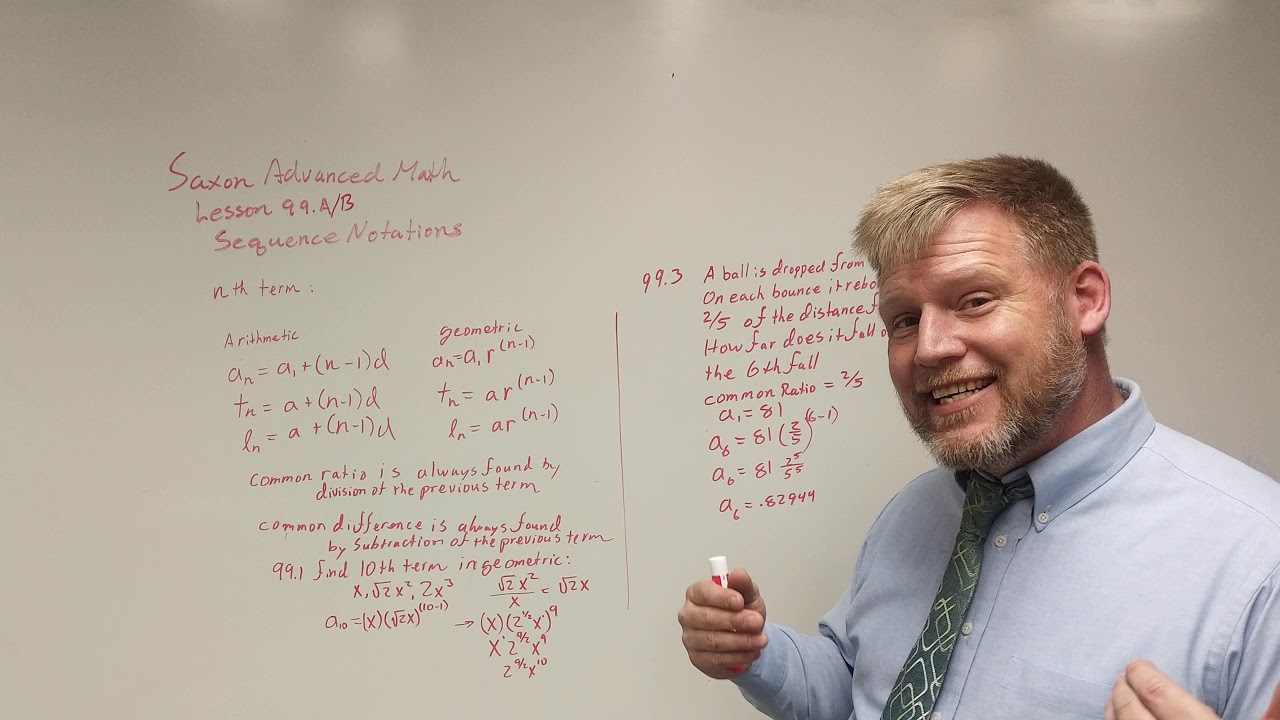 Saxon Advanced Math
Lesson 99.A/B
Sequence Notations
nth term:
Arithmetic
aₙ = a₁ + (n-1)d
tₙ = a + (n-1)d
lₙ = a + (n-1)d
geometric
aₙ = a₁ r⁽ⁿ⁻¹⁾
tₙ = ar⁽ⁿ⁻¹⁾
lₙ = ar⁽ⁿ⁻¹⁾
common ratio is always found by
division of the previous term
common difference is always found
by subtraction of the previous term
99.1 find 10th term in geometric:
x, √2x², 2x³
√2x²/x = √2x
a₁₀ = (x)(√2x)⁽¹⁰⁻¹⁾ → (x)(2^½x¹)⁹
x¹ 2^9/2 x⁹
2^9/2 x¹⁰
99.3 A ball is dropped from
On each bounce it
2/5 of the distance
How far does it fall
the 6th fall
common Ratio = 2/5
a₁ = 81
a₆ = 81(2/5)⁽⁶⁻¹⁾
a₆ = 81 2⁵/5⁵
a₆ = .82944